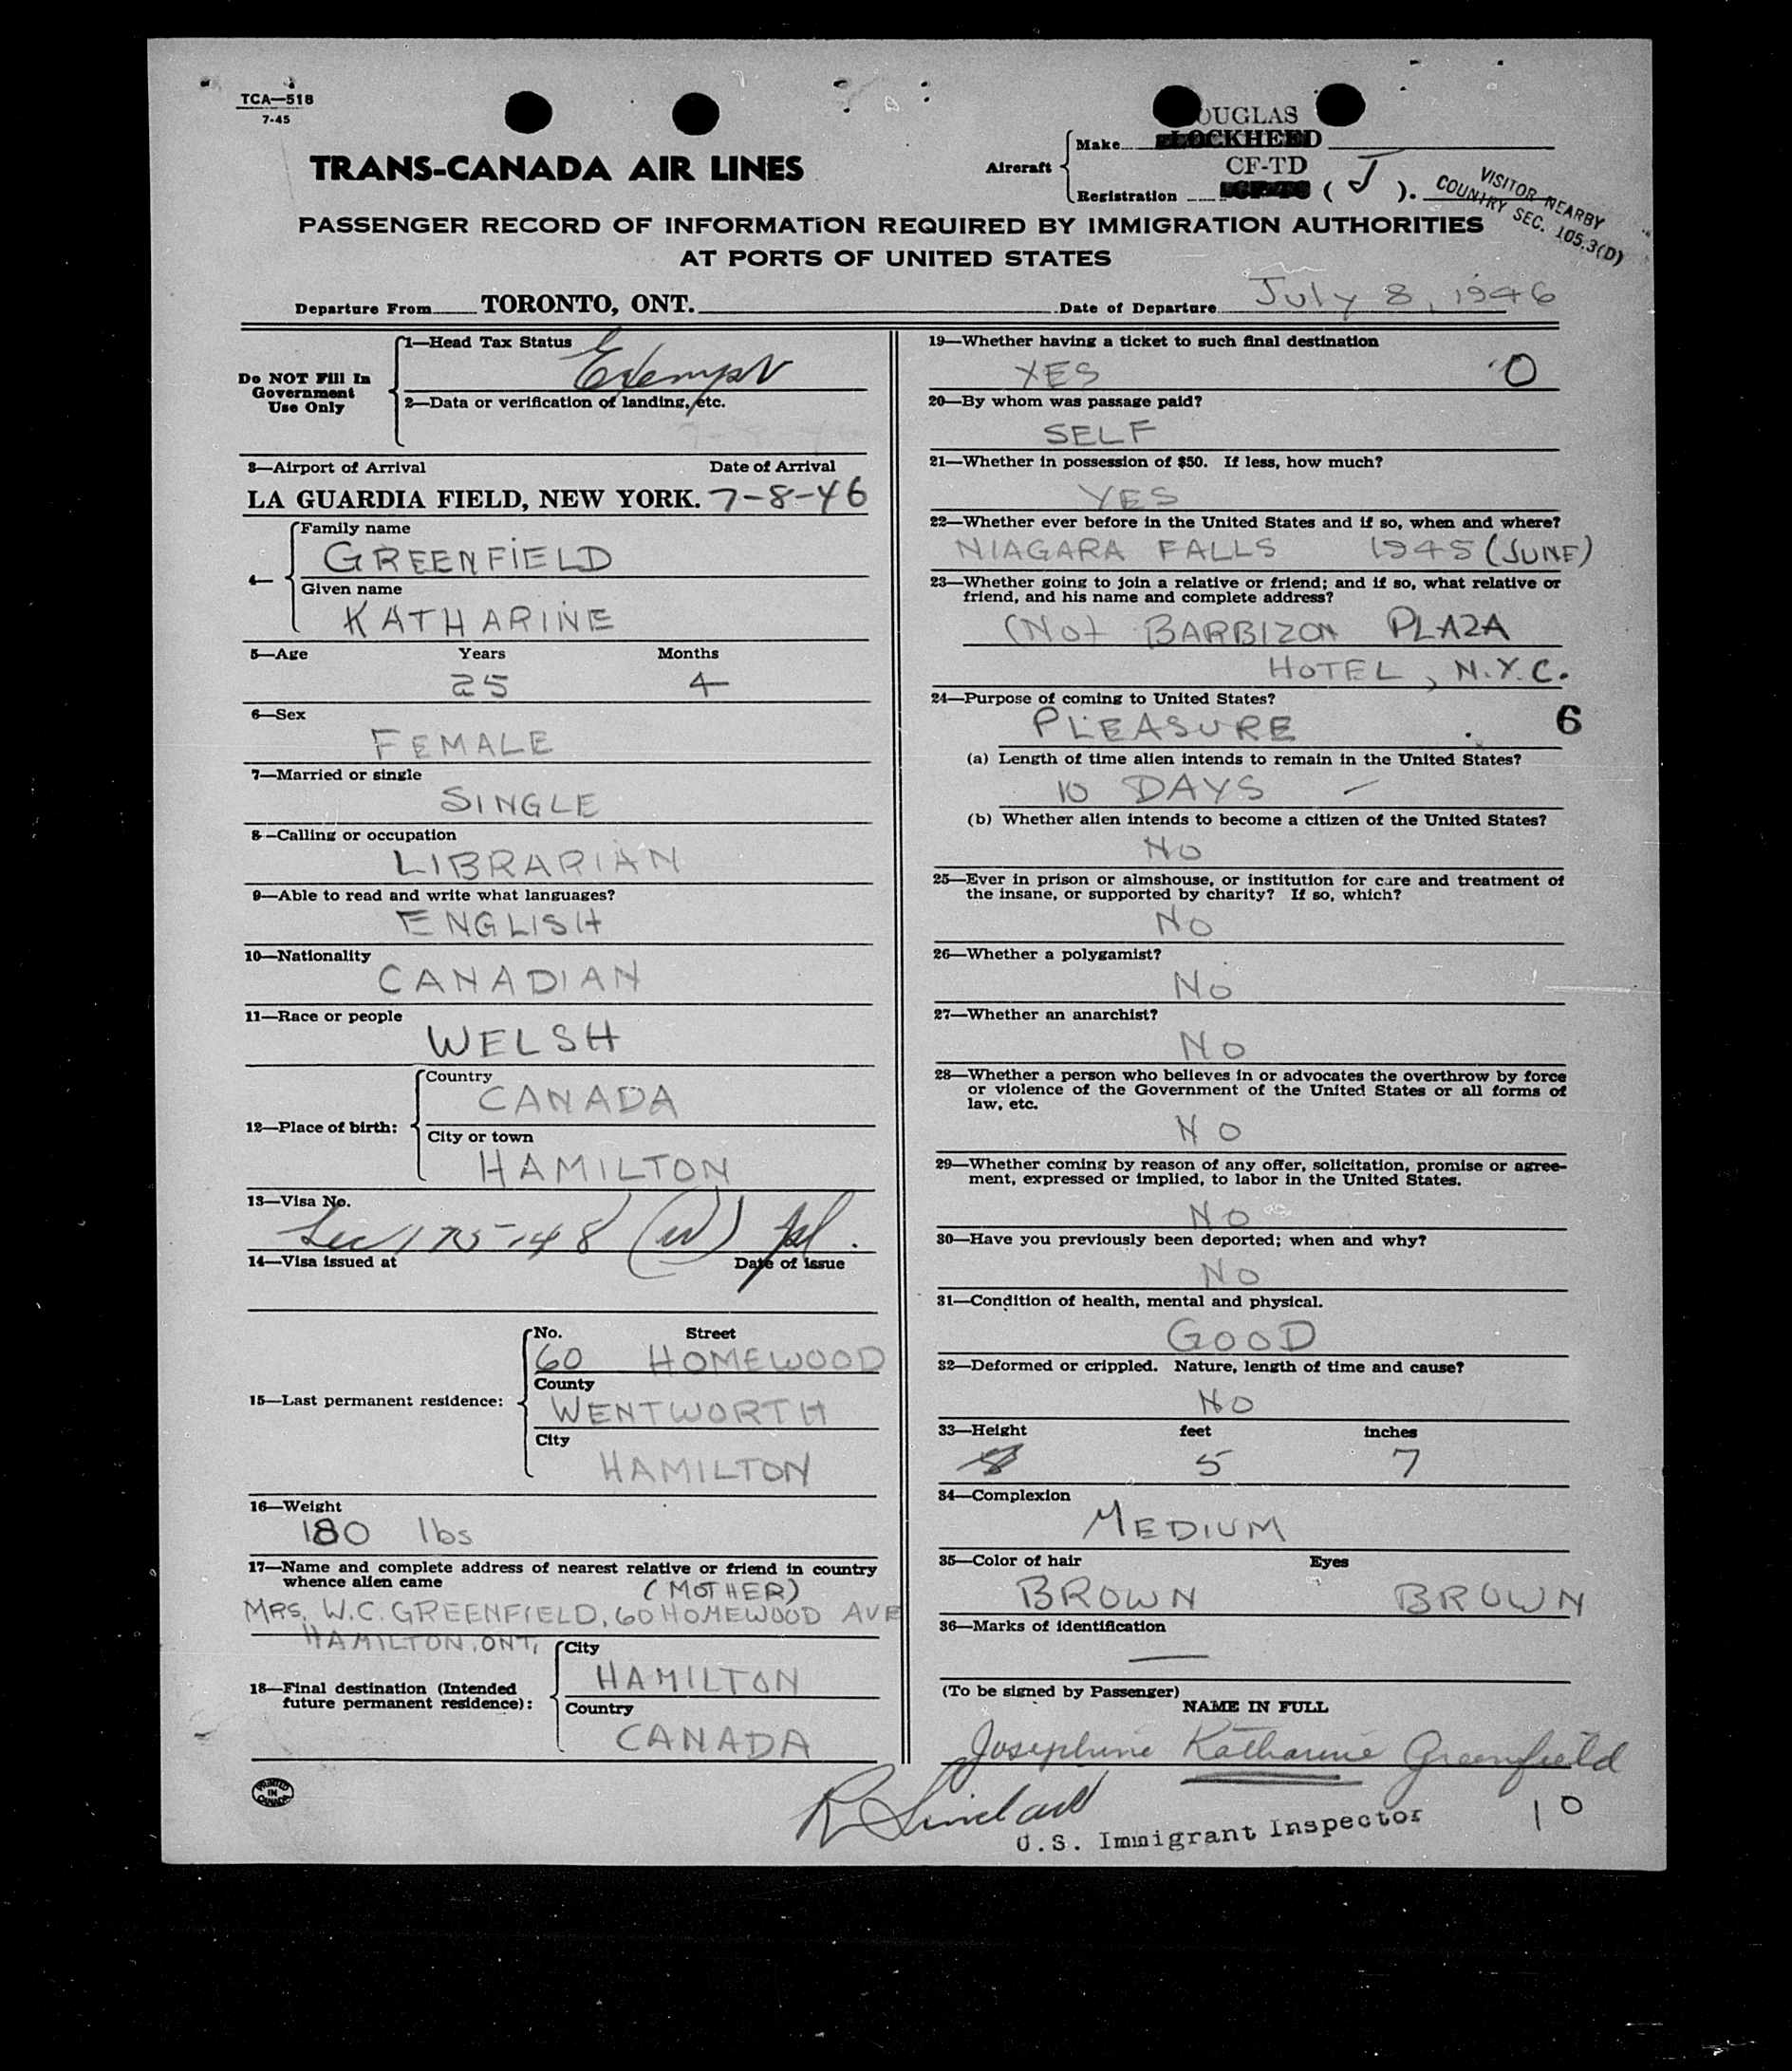 TCA—518
7-45
TRANS-CANADA AIR LINES
Aircraft
Make
OUGLAS
LOCKHEED
Registration
CF-TD
( J ).
VISITOR NEARBY
COUNTRY SEC. 105.3(D)
PASSENGER RECORD OF INFORMATION REQUIRED BY IMMIGRATION AUTHORITIES
AT PORTS OF UNITED STATES
Departure From TORONTO, ONT. Date of Departure July 8, 1946
Do NOT Fill In
Government
Use Only
1—Head Tax Status
Exempt
2—Data or verification of landing, etc.
7-8-46
3—Airport of Arrival Date of Arrival
LA GUARDIA FIELD, NEW YORK. 7-8-46
4—
Family name
GREENFIELD
Given name
KATHARINE
5—Age Years Months
25 4
6—Sex
FEMALE
7—Married or single
SINGLE
8—Calling or occupation
LIBRARIAN
9—Able to read and write what languages?
ENGLISH
10—Nationality
CANADIAN
11—Race or people
WELSH
12—Place of birth:
Country
CANADA
City or town
HAMILTON
13—Visa No.
Sec 175.48
14—Visa issued at Date of issue
15—Last permanent residence:
No. Street
60 HOMEWOOD
County
WENTWORTH
City
HAMILTON
16—Weight
180 lbs
17—Name and complete address of nearest relative or friend in country
whence alien came
(MOTHER)
MRS. W.C. GREENFIELD, 60 HOMEWOOD AVE
HAMILTON, ONT,
18—Final destination (Intended
future permanent residence):
City
HAMILTON
Country
CANADA
PRINTED
IN
CANADA
19—Whether having a ticket to such final destination
YES 0
20—By whom was passage paid?
SELF
21—Whether in possession of $50. If less, how much?
YES
22—Whether ever before in the United States and if so, when and where?
NIAGARA FALLS 1945 (JUNE)
23—Whether going to join a relative or friend; and if so, what relative or
friend, and his name and complete address?
(No) BARBIZON PLAZA
HOTEL, N.Y.C.
24—Purpose of coming to United States?
PLEASURE 6
(a) Length of time alien intends to remain in the United States?
10 DAYS –
(b) Whether alien intends to become a citizen of the United States?
NO
25—Ever in prison or almshouse, or institution for care and treatment of
the insane, or supported by charity? If so, which?
NO
26—Whether a polygamist?
No
27—Whether an anarchist?
No
28—Whether a person who believes in or advocates the overthrow by force
or violence of the Government of the United States or all forms of
law, etc.
NO
29—Whether coming by reason of any offer, solicitation, promise or agree-
ment, expressed or implied, to labor in the United States.
NO
30—Have you previously been deported; when and why?
NO
31—Condition of health, mental and physical.
GOOD
32—Deformed or crippled. Nature, length of time and cause?
NO
33—Height feet inches
5 7
34—Complexion
MEDIUM
35—Color of hair Eyes
BROWN BROWN
36—Marks of identification
—
(To be signed by Passenger)
NAME IN FULL
Josephine Katharine Greenfield
R Sinclair
U.S. Immigrant Inspector
10